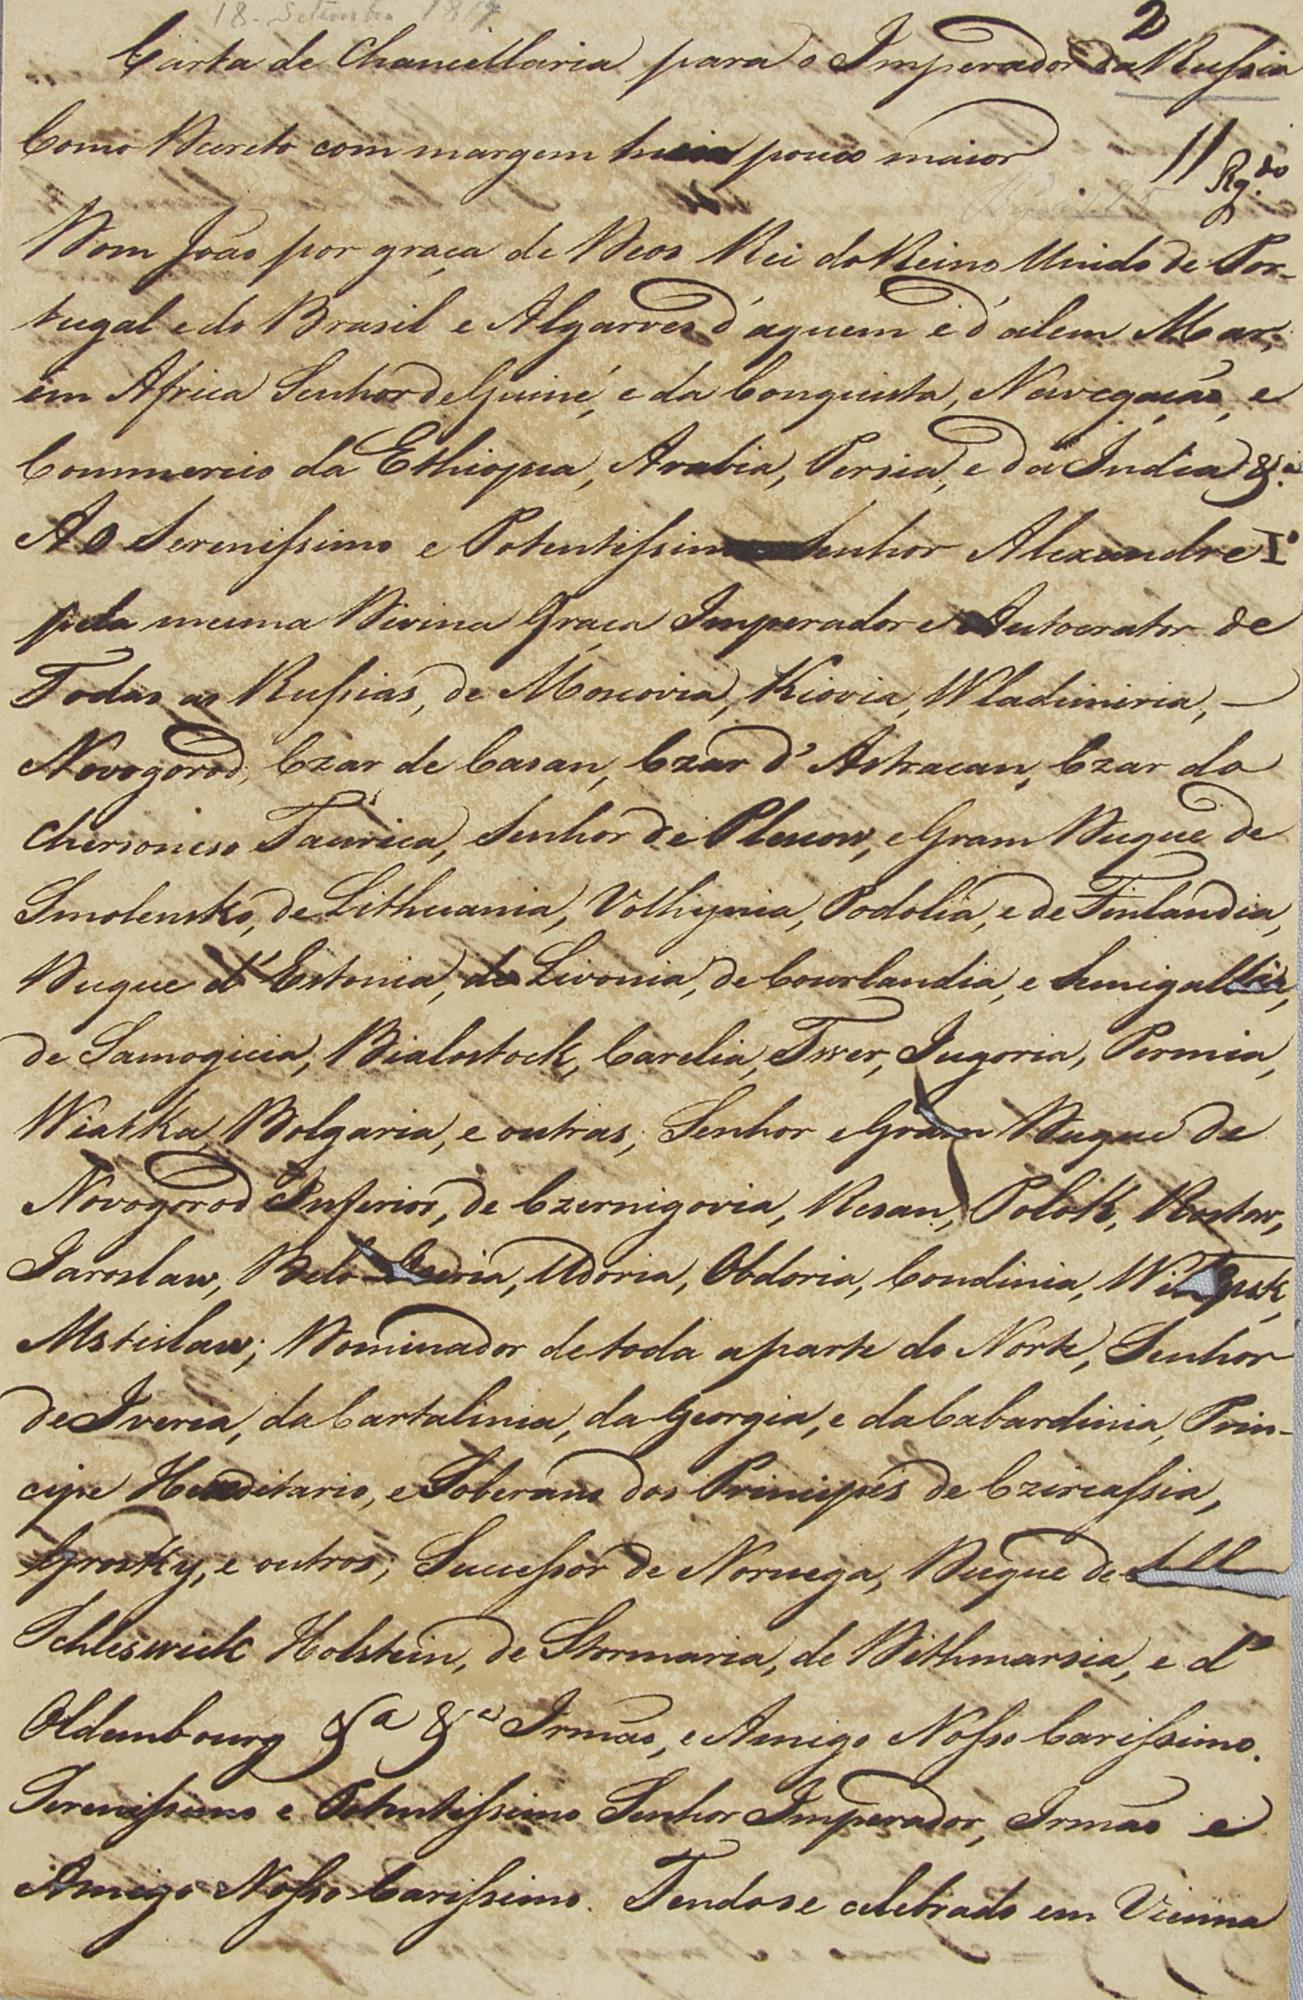 18 - Setembro 1817
2
Carta de Chancellaria para o Imperador da Russia
Como Decreto com margem pouco maior // Rg.do
Dom João por graça de Deos Rei do Reino Unido de Por-
tugal e do Brasil e Algarves d'aquem e d'alem Mar,
em Africa Senhor de Guiné, e da Conquista, Navegação, e
Commercio da Ethiopia, Arabia, Persia, e da India &.a
Ao Serenissimo e Potentissimo Senhor Alexandre I.o
pela mesma Divina Graça Imperador e Autocrator de
Todas as Russias, de Moscovia, Kiovia, Wladimiria, —
Novogorod, Czar de Casan, Czar d'Astracan, Czar do
Chersoneso Taurica, Senhor de Plescow, e Gram Duque de
Smolensko, de Lithuania, Volhynia, Podolia, e de Finlandia,
Duque d'Estonia, de Livonia, de Courlandia, e Semigallia,
de Samogicia, Bialostock, Carelia, Twer, Jugoria, Permia,
Wiatka, Bolgaria, e outras; Senhor e Gram Duque de
Novogorod Inferior, de Czernigovia, Resan, Polok, Rostow,
Jaroslaw, Belo-Oseria, Udoria, Obdoria, Condinia, Witepsk,
Mstislaw; Dominador de toda a parte do Norte, Senhor
de Iverea, da Cartalinia, da Georgia, e da Cabardinia, Prin-
cipe Hereditario, e Soberano dos Principes de Czircassia,
Gorsky, e outros; Successor de Noruega, Duque de
Schleswick Holstein, de Stormaria, de Dithmarsia, e d'
Oldembourg &a &a Irmão, e Amigo Nosso Carissimo.
Serenissimo e Potentissimo Senhor Imperador, Irmão e
Amigo Nosso Carissimo. Tendose celebrado em Vienna